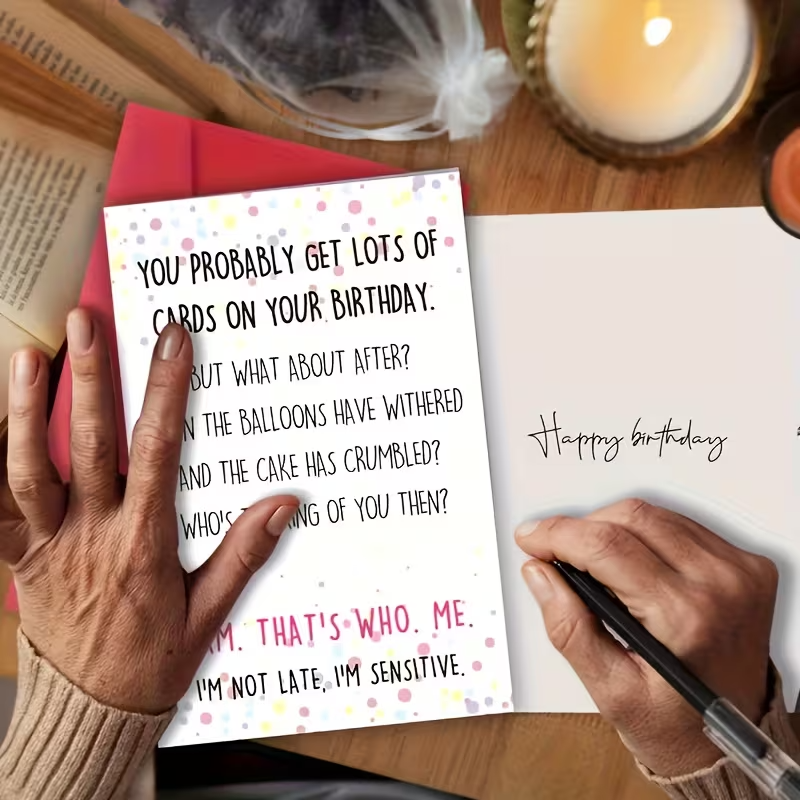 YOU PROBABLY GET LOTS OF
CARDS ON YOUR BIRTHDAY.
BUT WHAT ABOUT AFTER?
THE BALLOONS HAVE WITHERED
AND THE CAKE HAS CRUMBLED?
WHO'S OF YOU THEN?
THAT'S WHO. ME.
I'M NOT LATE, I'M SENSITIVE.
Happy birthday